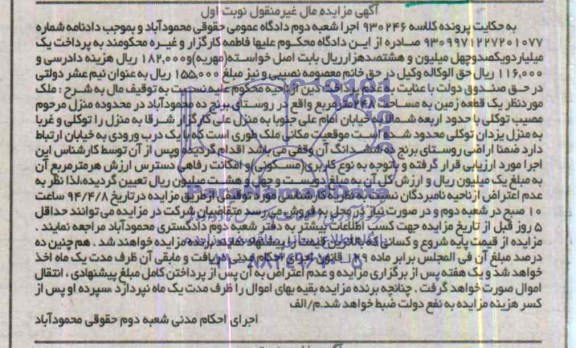 آگهی مزایده مال غیرمنقول نوبت اول
به حکایت پرونده کلاسه ۹۳۰۲۴۶ اجرا شعبه دوم دادگاه عمومی حقوقی محمودآباد و بموجب دادنامه شماره
۹۳۰۹۹۷۱۲۲۷۲۰۱۰۷۷ صادره از این دادگاه محکوم علیها فاطمه کارگزار و غیره محکومند به پرداخت یک
میلیارد و یکصد و چهل میلیون و هشتصد هزار ریال بابت اصل خواسته (مهریه) و ۱۸۲,۰۰۰ ریال هزینه دادرسی و
۱۱۶,۰۰۰ ریال حق الوکاله وکیل در حق خانم معصومه نصیبی و نیز مبلغ ۱۵۵,۰۰۰ ریال به عنوان نیم عشر دولتی
در حق صندوق دولت با عنایت به عدم پرداخت دین از ناحیه محکوم علیه نسبت به توقیف مال به شرح: ملک
موردنظر یک قطعه زمین به مساحت ۲۴۸ مترمربع واقع در روستای برنج ده محمودآباد در محدوده منزل مرحوم
مصیب توکلی با حدود اربعه شمالا به خیابان امام علی جنوبا به منزل علی کارگزار شرقا به منزل را توکلی و غربا
به منزل یزدان توکلی محدود شده است موقعیت مکانی ملک طوری است که با یک درب ورودی به خیابان ارتباط
دارد ضمنا اراضی روستای برنج ده ششدانگ آن وقفی می باشد اقدام گردیده و پس از آن توسط کارشناس این
اجرا مورد ارزیابی قرار گرفته و باتوجه به نوع کاربری (مسکونی) و امکانات رفاهی دسترس ارزش هر مترمربع آن
به مبلغ یک میلیون ریال و ارزش کل آن به مبلغ دویست و چهل و هشت میلیون ریال تعیین گردیده، لذا نظر به
عدم اعتراض از ناحیه نامبردگان نسبت به نظریه کارشناسی مورد توقیفی از طریق مزایده در تاریخ ۹۴/۴/۸ ساعت
۱۰ صبح در شعبه دوم و در صورت نیاز در محل به فروش می رسد متقاضیان شرکت در مزایده می توانند حداقل
۵ روز قبل از تاریخ مزایده جهت کسب اطلاعات بیشتر به دفتر شعبه دوم دادگستری محمودآباد مراجعه نمایند.
مزایده از قیمت پایه شروع و کسانی که بالاترین قیمت را پیشنهاد نمایند برنده مزایده خواهند شد. هم چنین ده
درصد مبلغ آن فی المجلس برابر ماده ۱۴۹ قانون اجرای احکام مدنی دریافت و مابقی آن ظرف مدت یک ماه اخذ
خواهد شد و یک هفته پس از برگزاری مزایده و عدم اعتراض به آن پس از پرداختن کامل مبلغ پیشنهادی، انتقال
اموال صورت خواهد گرفت. چنانچه برنده مزایده بقیه بهای اموال را ظرف مدت یک ماه نپردازد، سپرده او پس از
کسر هزینه مزایده به نفع دولت ضبط خواهد شد. م/الف
اجرای احکام مدنی شعبه دوم حقوقی محمودآباد